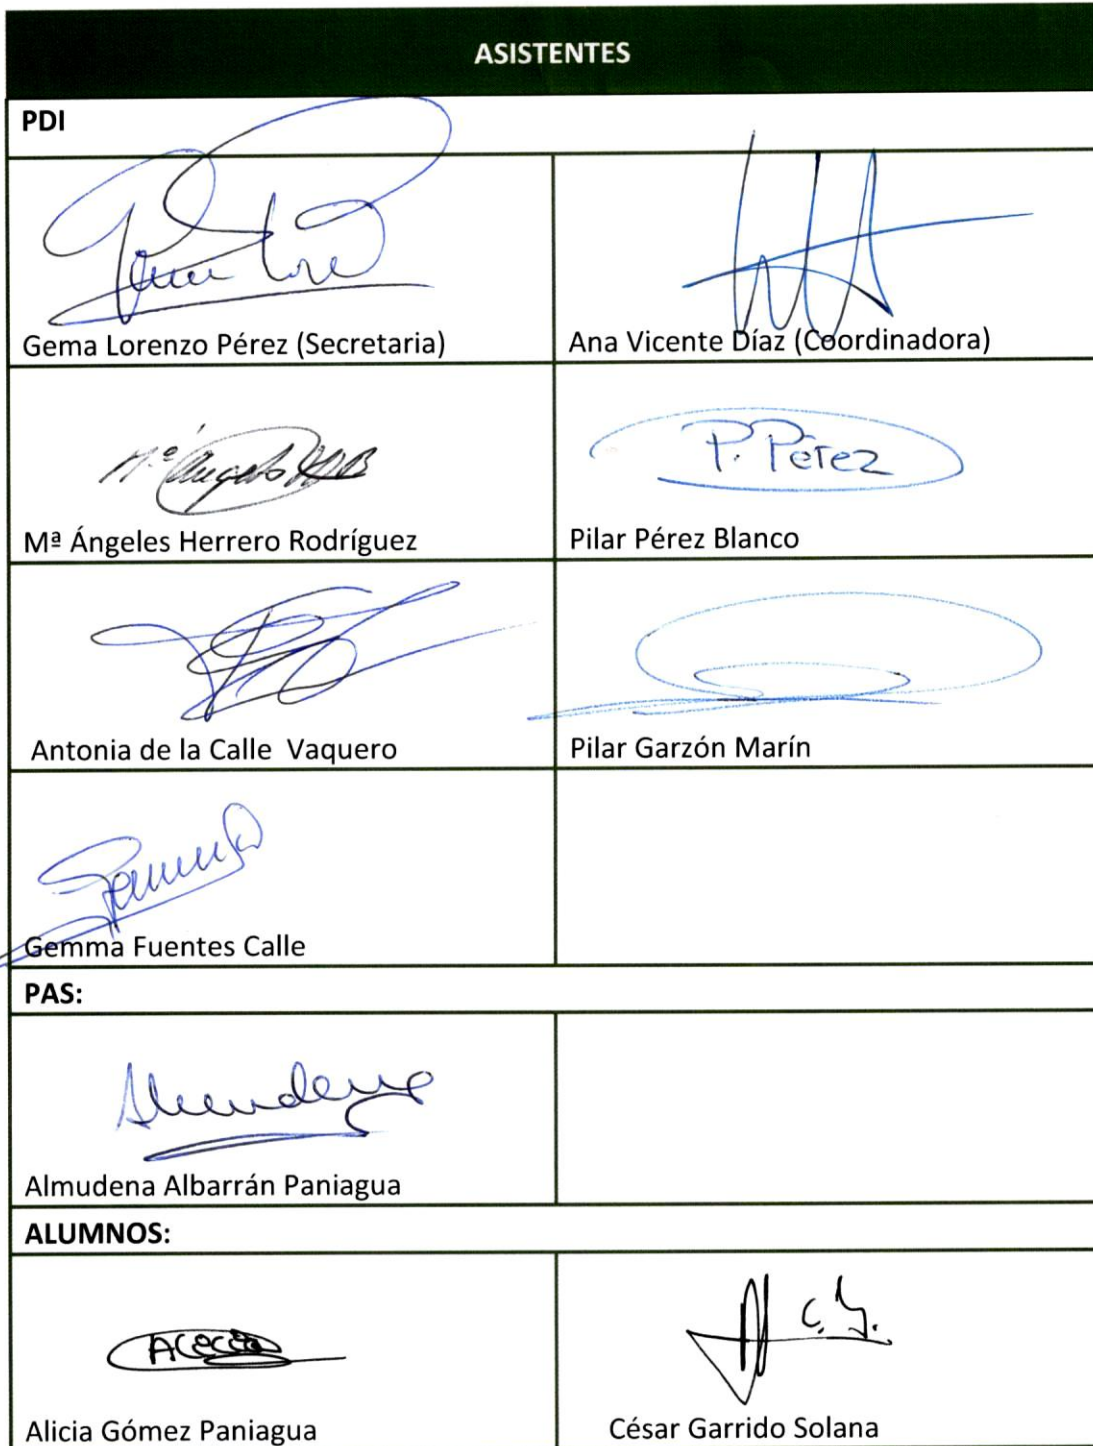 ASISTENTES
PDI
Gema Lorenzo Pérez (Secretaria)
Ana Vicente Díaz (Coordinadora)
Mª Ángeles
Mª Ángeles Herrero Rodríguez
P. Pérez
Pilar Pérez Blanco
Antonia de la Calle Vaquero
Pilar Garzón Marín
Gemma Fuentes Calle
PAS:
Almudena
Almudena Albarrán Paniagua
ALUMNOS:
Alicia Gómez Paniagua
C. G.
César Garrido Solana